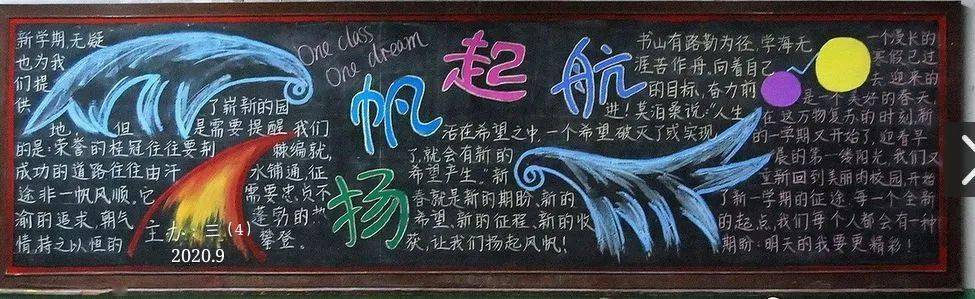 新学期,无疑
也为我
们提
供 了崭新的园
地。但是需要提醒我们
的是:荣誉的桂冠往往要荆棘编就,
成功的道路往往由汗水铺通,征
途非一帆风顺。它需要忠贞不
渝的追求,朝气蓬勃的热
情,持之以恒的攀登。
主办:三(4)
2020.9
One class
One dream
扬帆起航
书山有路勤为径,学海无
涯苦作舟。向着自己
的目标,奋力前
进!莫泊桑说:"人生
活在希望之中一个希望破灭了或实现
了,就会有新的
希望产生。"新
春就是新的期盼、新的
希望、新的征程、新的收
获,让我们扬起风帆!
一个漫长的
寒假已过
去,迎来的
是一个美好的春天,
在这万物复苏的时刻,新
的一学期又开始了,迎着早
晨的第一缕阳光,我们又
重新回到美丽的校园,开始
了新一学期的征途。每一个全新
的起点,我们每个人都会有一种
期盼:明天的我要更精彩!